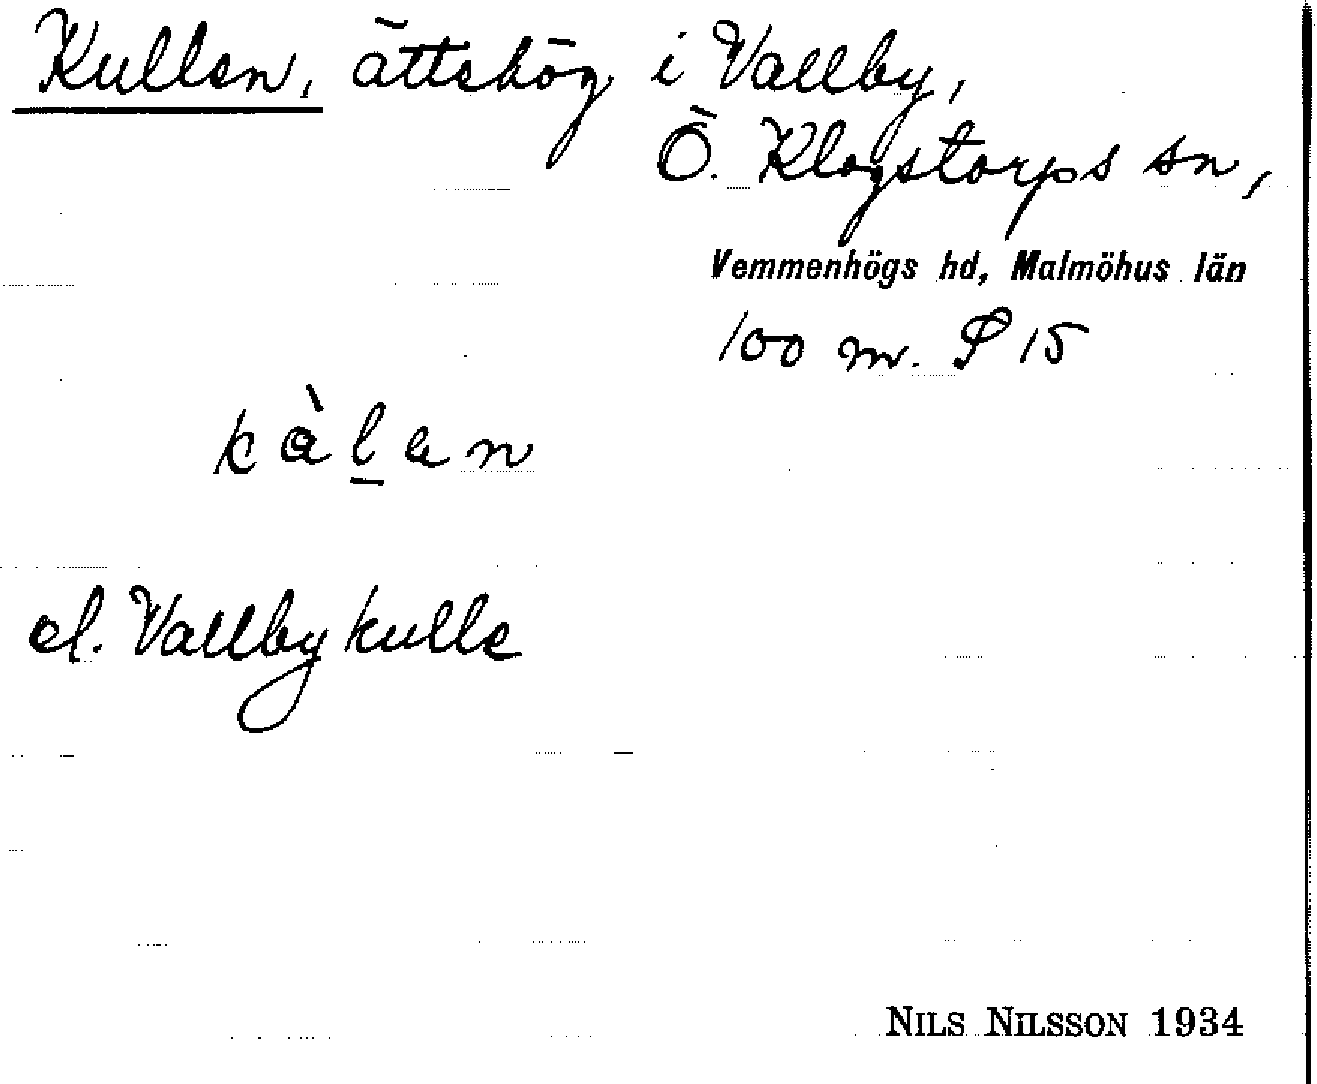 Kullen, ättehög i Vallby,
Ö. Klagstorps sn,
Vemmenhögs hd, Malmöhus län
100 m. S 15
kàḻan
el. Vallby kulle
NILS NILSSON 1934